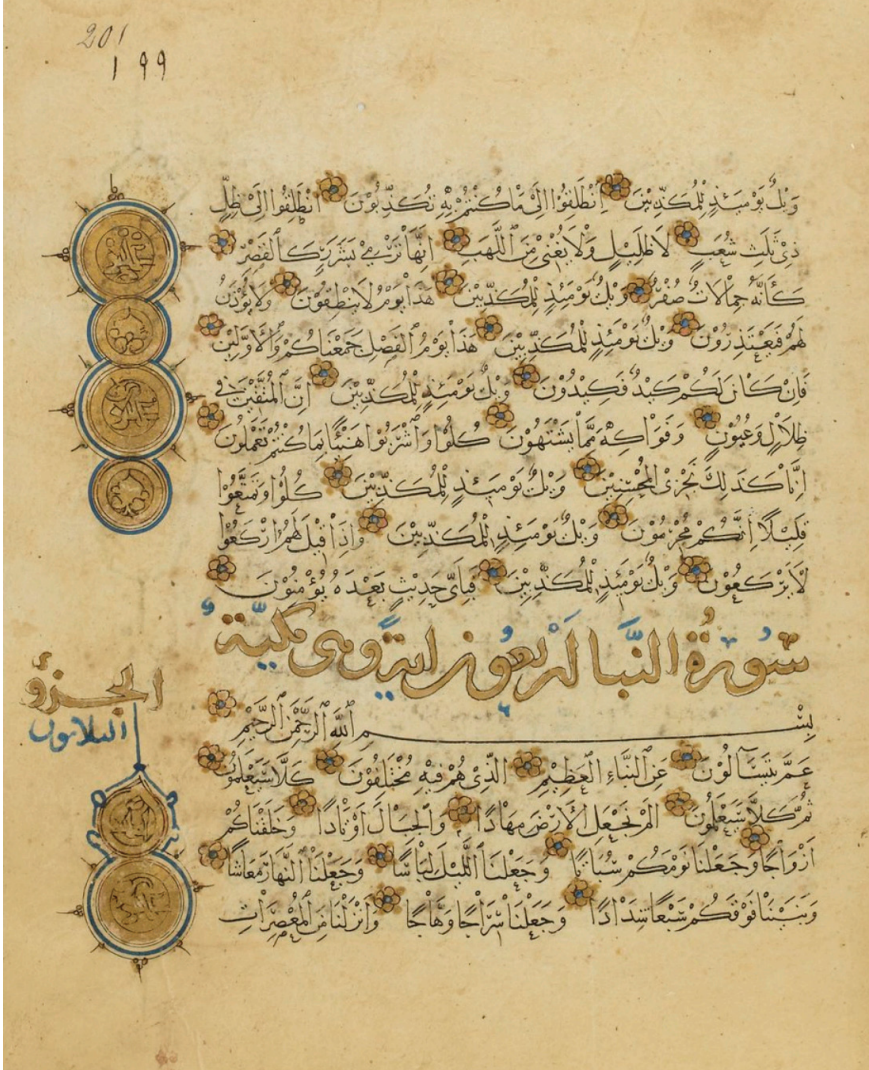 201
١٩٩
وَيْلٌ يَوْمَئِذٍ لِلْمُكَذِّبِينَ اِنْطَلِقُوا اِلَى مَا كُنْتُمْ بِهِ تُكَذِّبُونَ اِنْطَلِقُوا اِلَى ظِلٍّ
ذِي ثَلَثِ شُعَبٍ لَا ظَلِيلٍ وَلَا يُغْنِي مِنَ اللَّهَبِ اِنَّهَا تَرْمِي بِشَرَرٍ كَالْقَصْرِ
كَأَنَّهُ جِمَالَاتٌ صُفْرٌ وَيْلٌ يَوْمَئِذٍ لِلْمُكَذِّبِينَ هَذَا يَوْمُ لَا يَنْطِقُونَ وَلَا يُؤْذَنُ
لَهُمْ فَيَعْتَذِرُونَ وَيْلٌ يَوْمَئِذٍ لِلْمُكَذِّبِينَ هَذَا يَوْمُ الْفَصْلِ جَمَعْنَاكُمْ وَالْأَوَّلِينَ
فَاِنْ كَانَ لَكُمْ كَيْدٌ فَكِيدُونِ وَيْلٌ يَوْمَئِذٍ لِلْمُكَذِّبِينَ اِنَّ الْمُتَّقِينَ فِي
ظِلَالٍ وَعُيُونٍ وَفَوَاكِهَ مِمَّا يَشْتَهُونَ كُلُوا وَاشْرَبُوا هَنِيئًا بِمَا كُنْتُمْ تَعْمَلُونَ
اِنَّا كَذَلِكَ نَجْزِي الْمُحْسِنِينَ وَيْلٌ يَوْمَئِذٍ لِلْمُكَذِّبِينَ كُلُوا وَتَمَتَّعُوا
قَلِيلًا اِنَّكُمْ مُجْرِمُونَ وَيْلٌ يَوْمَئِذٍ لِلْمُكَذِّبِينَ وَاِذَا قِيلَ لَهُمُ ارْكَعُوا
لَا يَرْكَعُونَ وَيْلٌ يَوْمَئِذٍ لِلْمُكَذِّبِينَ فَبِأَيِّ حَدِيثٍ بَعْدَهُ يُؤْمِنُونَ
سُورَةُ النَّبَا اربعون اية وهي مكية
الجزؤ
الثلاثون
بِسْمِ اللَّهِ الرَّحْمَنِ الرَّحِيمِ
عَمَّ يَتَسَآلُونَ عَنِ النَّبَاءِ الْعَظِيمِ الَّذِي هُمْ فِيهِ مُخْتَلِفُونَ كَلَّا سَيَعْلَمُونَ
ثُمَّ كَلَّا سَيَعْلَمُونَ اَلَمْ نَجْعَلِ الْأَرْضَ مِهَادًا وَالْجِبَالَ اَوْتَادًا وَخَلَقْنَاكُمْ
اَزْوَاجًا وَجَعَلْنَا نَوْمَكُمْ سُبَاتًا وَجَعَلْنَا اللَّيْلَ لِبَاسًا وَجَعَلْنَا النَّهَارَ مَعَاشًا
وَبَنَيْنَا فَوْقَكُمْ سَبْعًا شِدَادًا وَجَعَلْنَا سِرَاجًا وَهَّاجًا وَاَنْزَلْنَا مِنَ الْمُعْصِرَاتِ